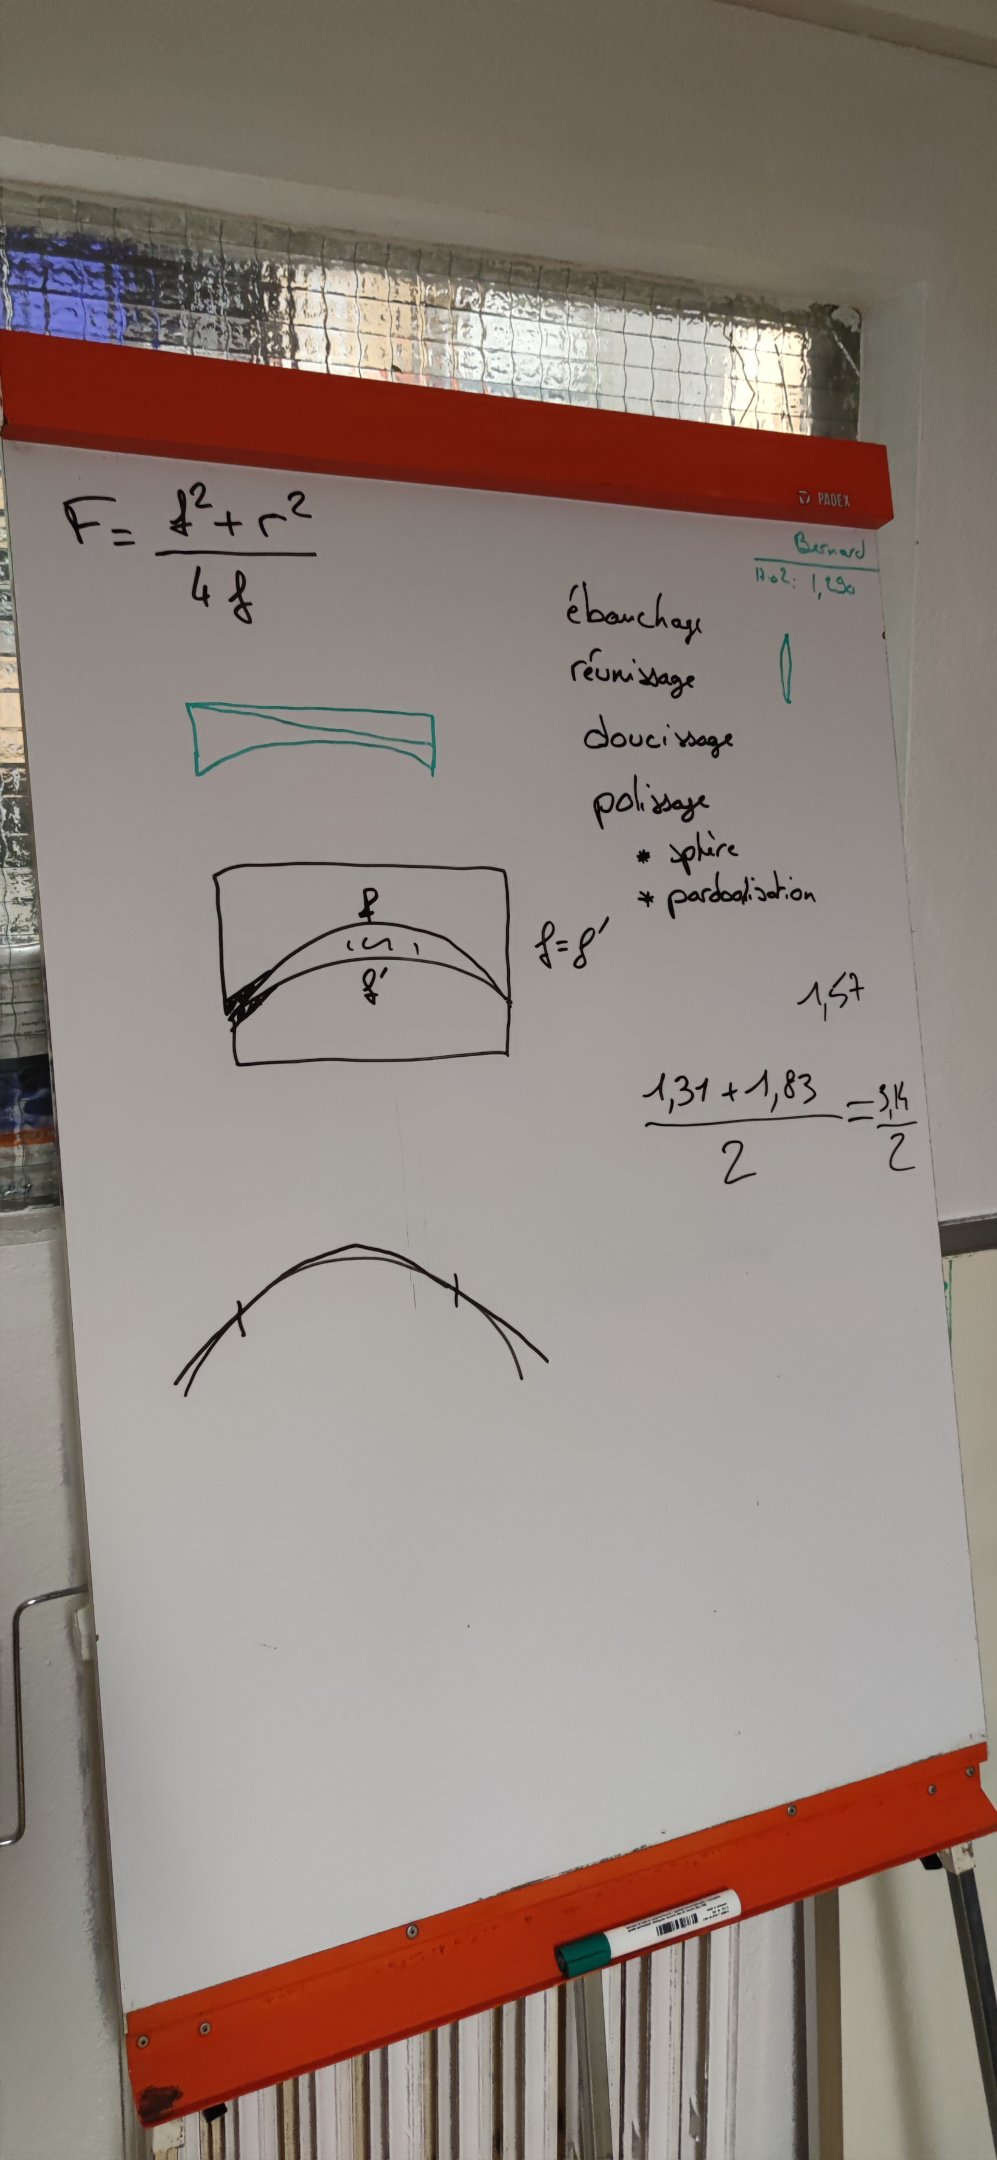 PADEX
F = f² + r²
4 f
Bernard
17.02: 1,290
ébauchage
réunissage
doucissage
polissage
* sphère
* pardoalisation
f
f'
f = f'
1,57
1,31 + 1,83 = 3,14
2 2